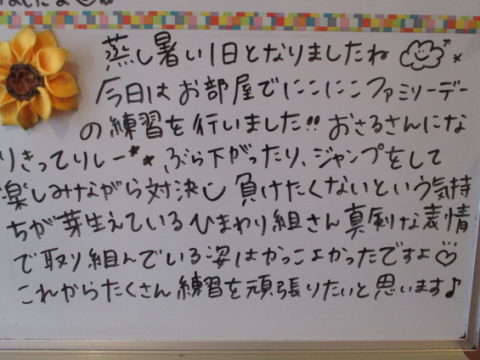 蒸し暑い1日となりましたね
今日はお部屋でにこにこファミリーデー
の練習を行いました!! おさるさんにな
りきってリレー ぶら下がったり、ジャンプをして
楽しみながら対決し負けたくないという気持
ちが芽生えているひまわり組さん真剣な表情
で取り組んでいる姿はかっこよかったですよ♡
これからたくさん練習を頑張りたいと思います♪